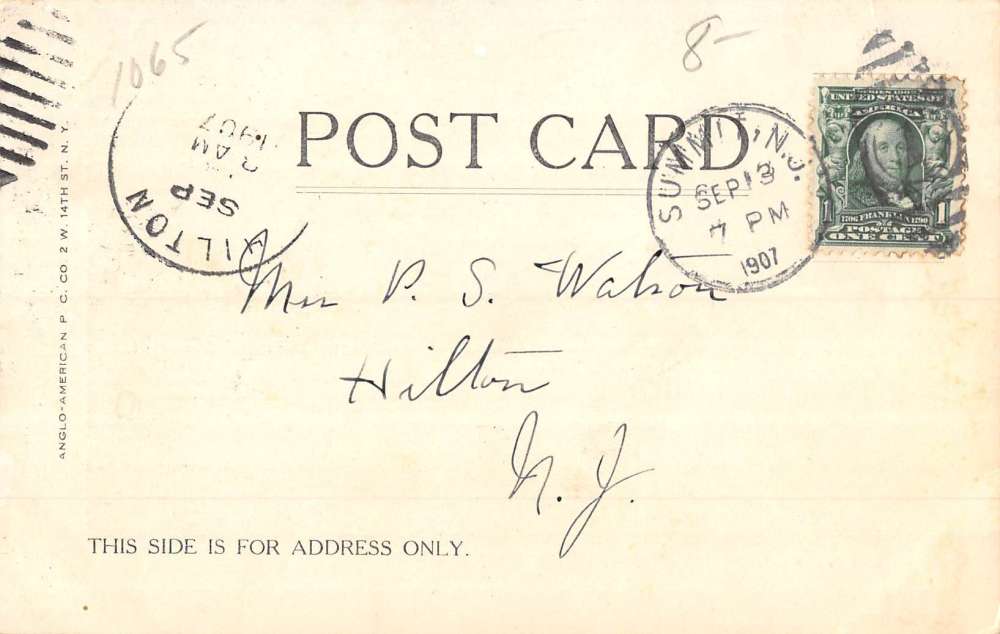 1065
8-
POST CARD
HILTON
SEP
AM
1907
SUMMIT, N.J.
SEP 13
7 PM
1907
SERIES 1902
UNITED STATES OF
AMERICA
1706 FRANKLIN 1790
POSTAGE
1
ONE CENT
P. S. Watson
Hilton
N. J.
THIS SIDE IS FOR ADDRESS ONLY.
ANGLO-AMERICAN P. C. CO. 2 W. 14TH ST. N. Y.